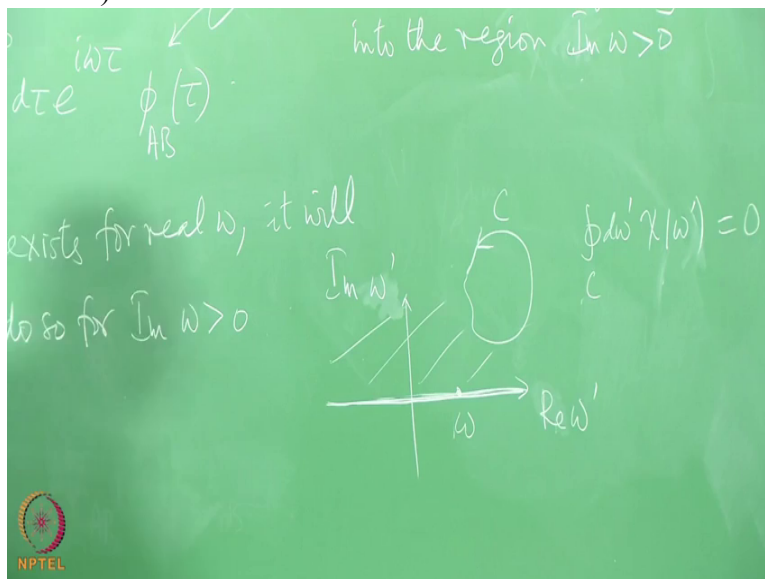 into the region Im ω > 0
dτ e^{iωτ} ϕ_{AB}(τ)
exists for real ω, it will
do so for Im ω > 0
C
∮_C dω' χ(ω') = 0
Im ω'
ω
Re ω'
NPTEL